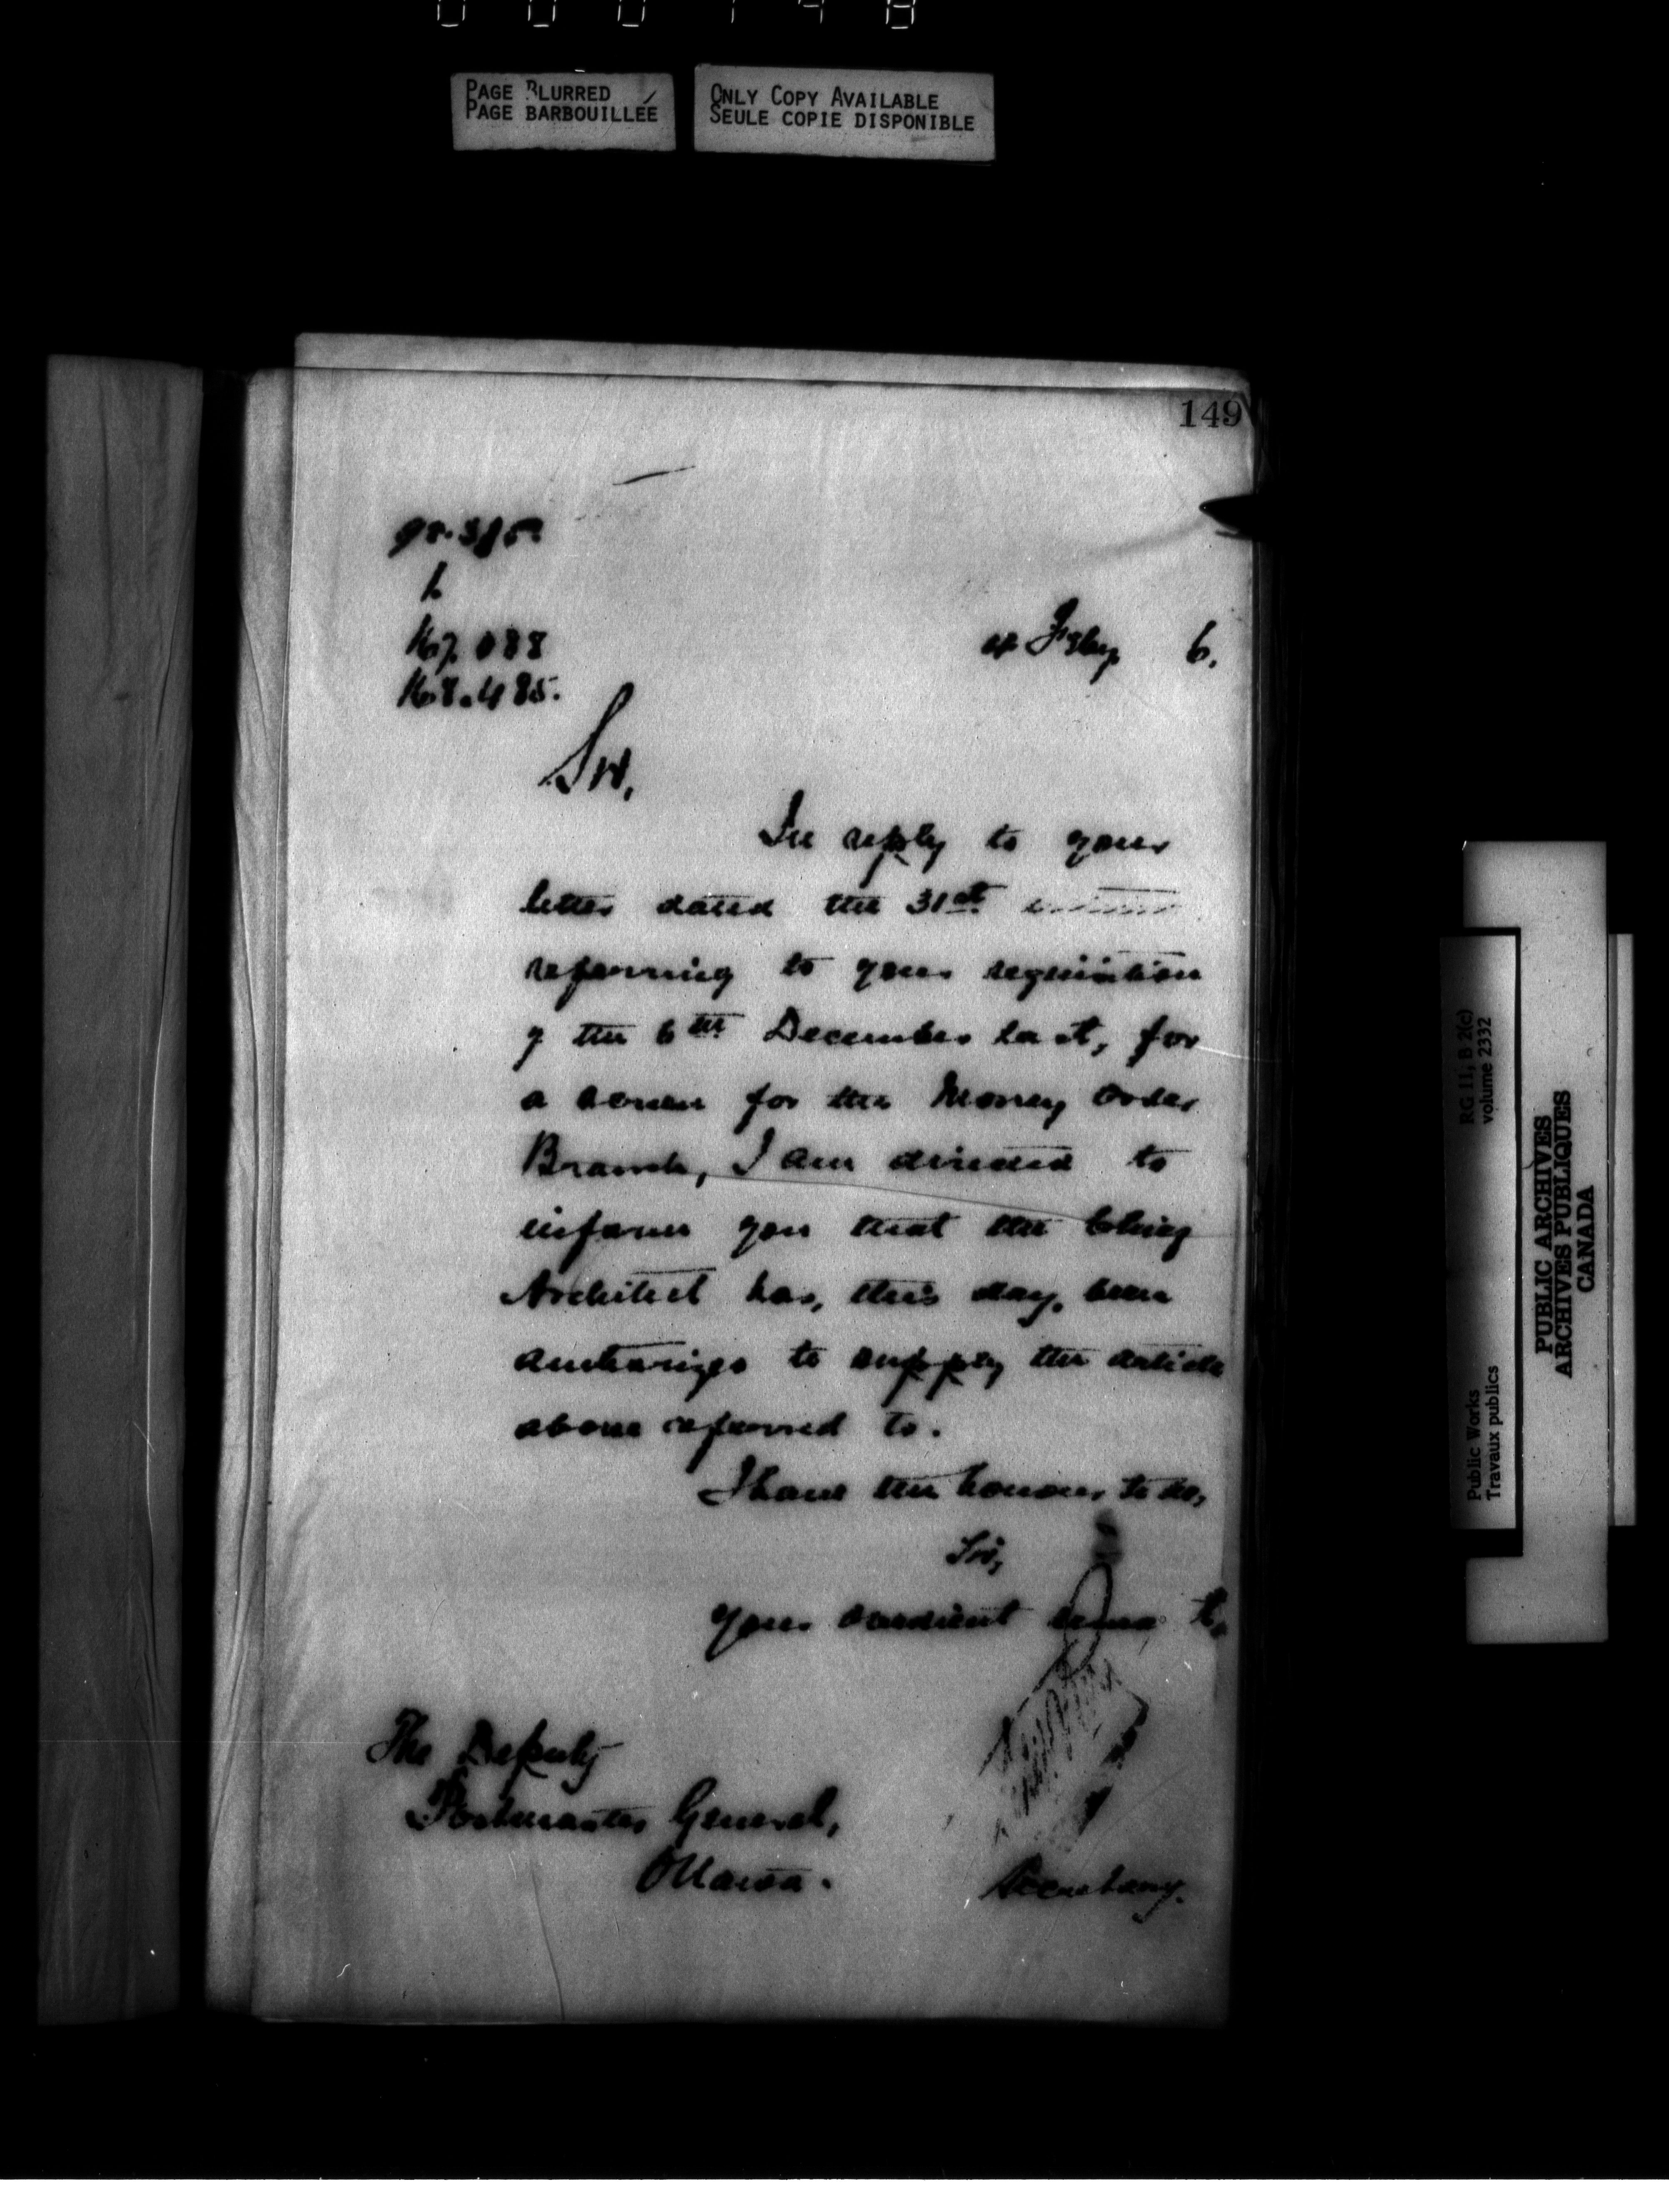 PAGE BLURRED
PAGE BARBOUILLÉE
ONLY COPY AVAILABLE
SEULE COPIE DISPONIBLE
149
1.
6.
Sir,
In reply to your
letter dated the 31st
referring to your requisition
of the 6th December last, for
a screen for the Money Order
Branch, I am directed to
inform you that the Chief
Architect has, this day, been
authorized to supply the article
above referred to.
I have the honour to be,
Sir,
Your obedient servant,
The Deputy
Postmaster General,
Ottawa.
Secretary.
RG 11, B 2(c)
volume 2332
Public Works
Travaux publics
PUBLIC ARCHIVES
ARCHIVES PUBLIQUES
CANADA